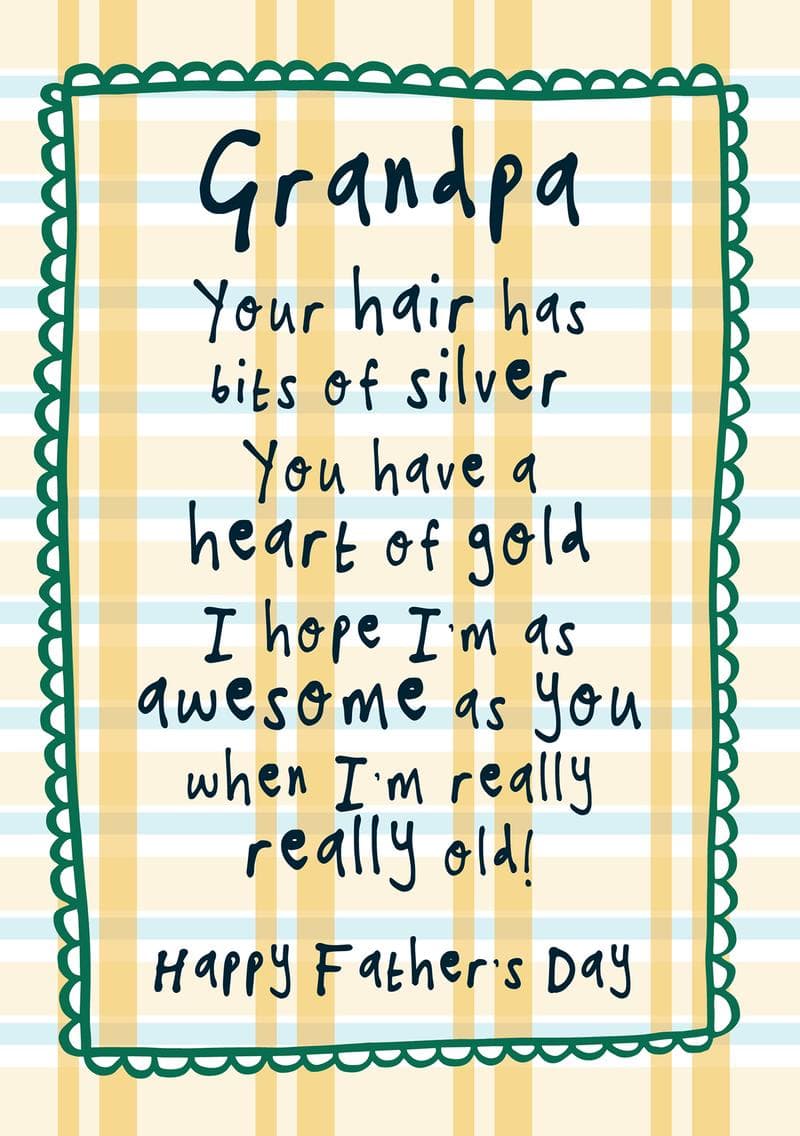 Grandpa
Your hair has
bits of silver
You have a
heart of gold
I hope I'm as
awesome as you
when I'm really
really old!
Happy Father's Day